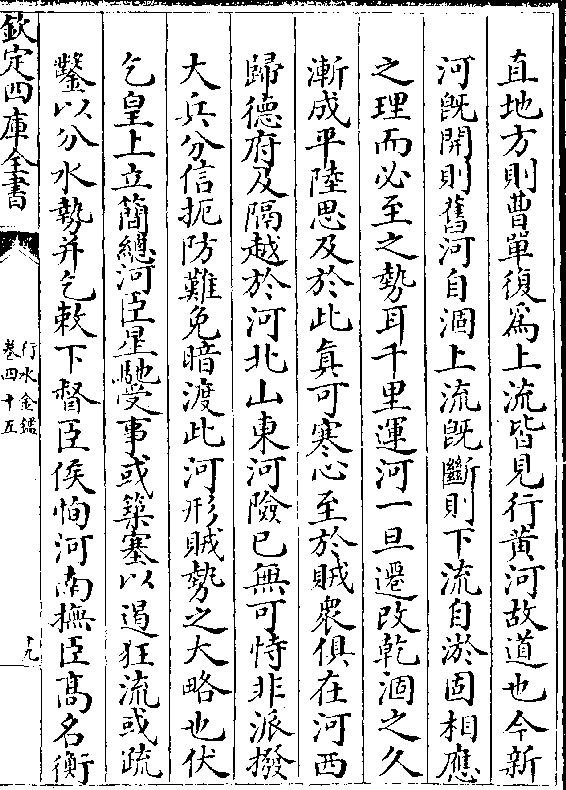 直地方則曹單復為上流皆見行黃河故道也今新
河旣開則舊河自涸上流旣斷則下流自淤固相應
之理而必至之勢耳千里運河一旦遷改乾涸之久
漸成平陸思及於此真可寒心至於賊衆俱在河西
歸德府及隔越於河北山東河險已無可恃非派撥
大兵分信扼防難免暗渡此河形賊勢之大略也伏
乞皇上立簡總河臣星馳受事或築塞以遏狂流或疏
鑿以分水勢并乞敕下督臣侯恂河南撫臣高名衡
欽定四庫全書
行水金鑑
卷四十五
九